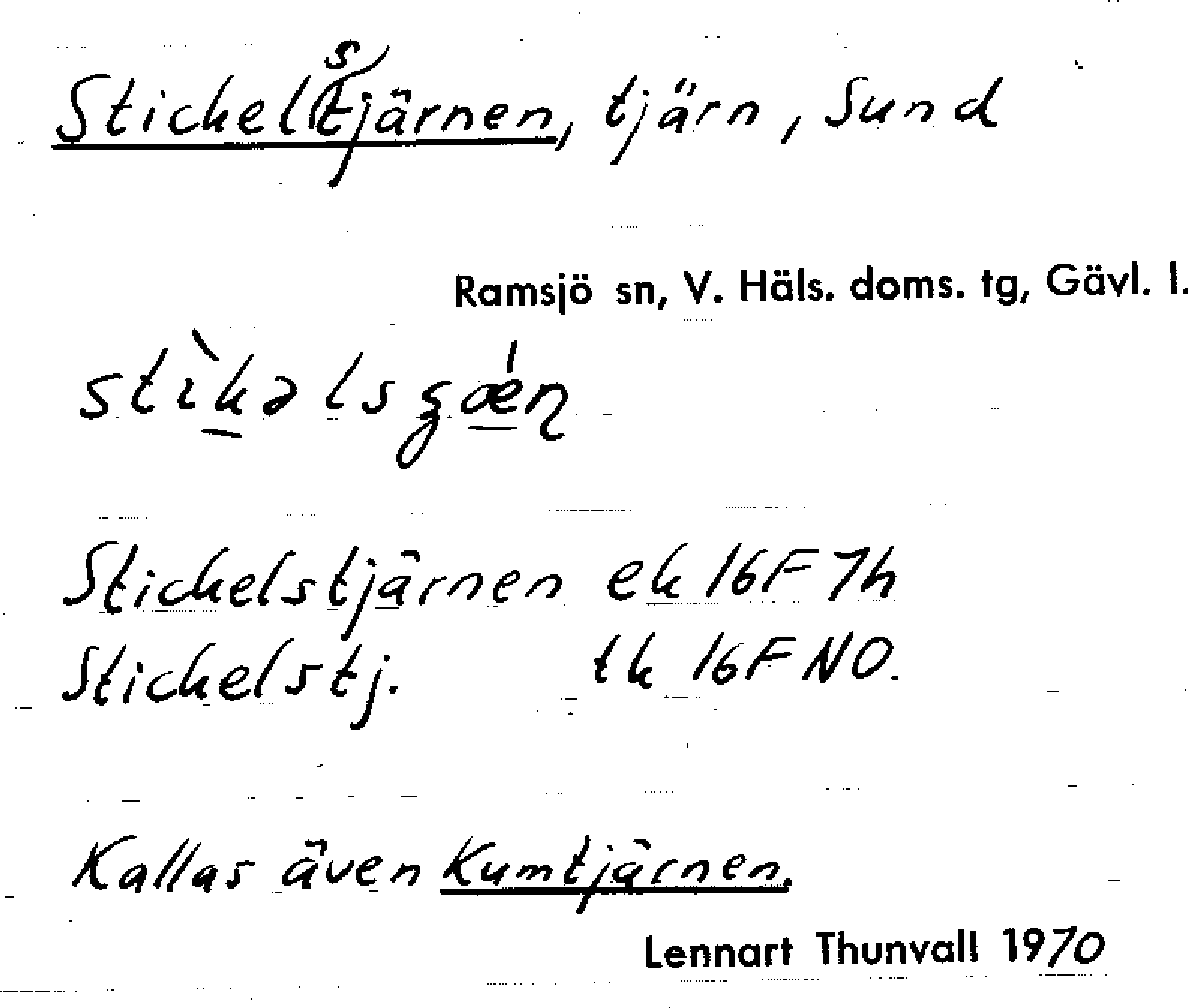 Stickelstjärnen, tjärn, Sund
Ramsjö sn, V. Häls. doms. tg, Gävl. l.
Stickelstjärnen ek 16F 7h
Stickelstj. tk 16F NO.
Kallas även Kumtjärnen.
Lennart Thunvall 1970